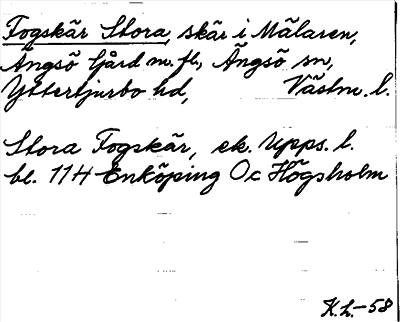 Fogskär Stora, skär i Mälaren,
Ängsö Gård m. fl., Ängsö sn,
Yttertjurbo hd, Västm. l.
Stora Fogskär, ek. Upps. l.
bl. 114 Enköping Oc Högsholm
K.L.-58